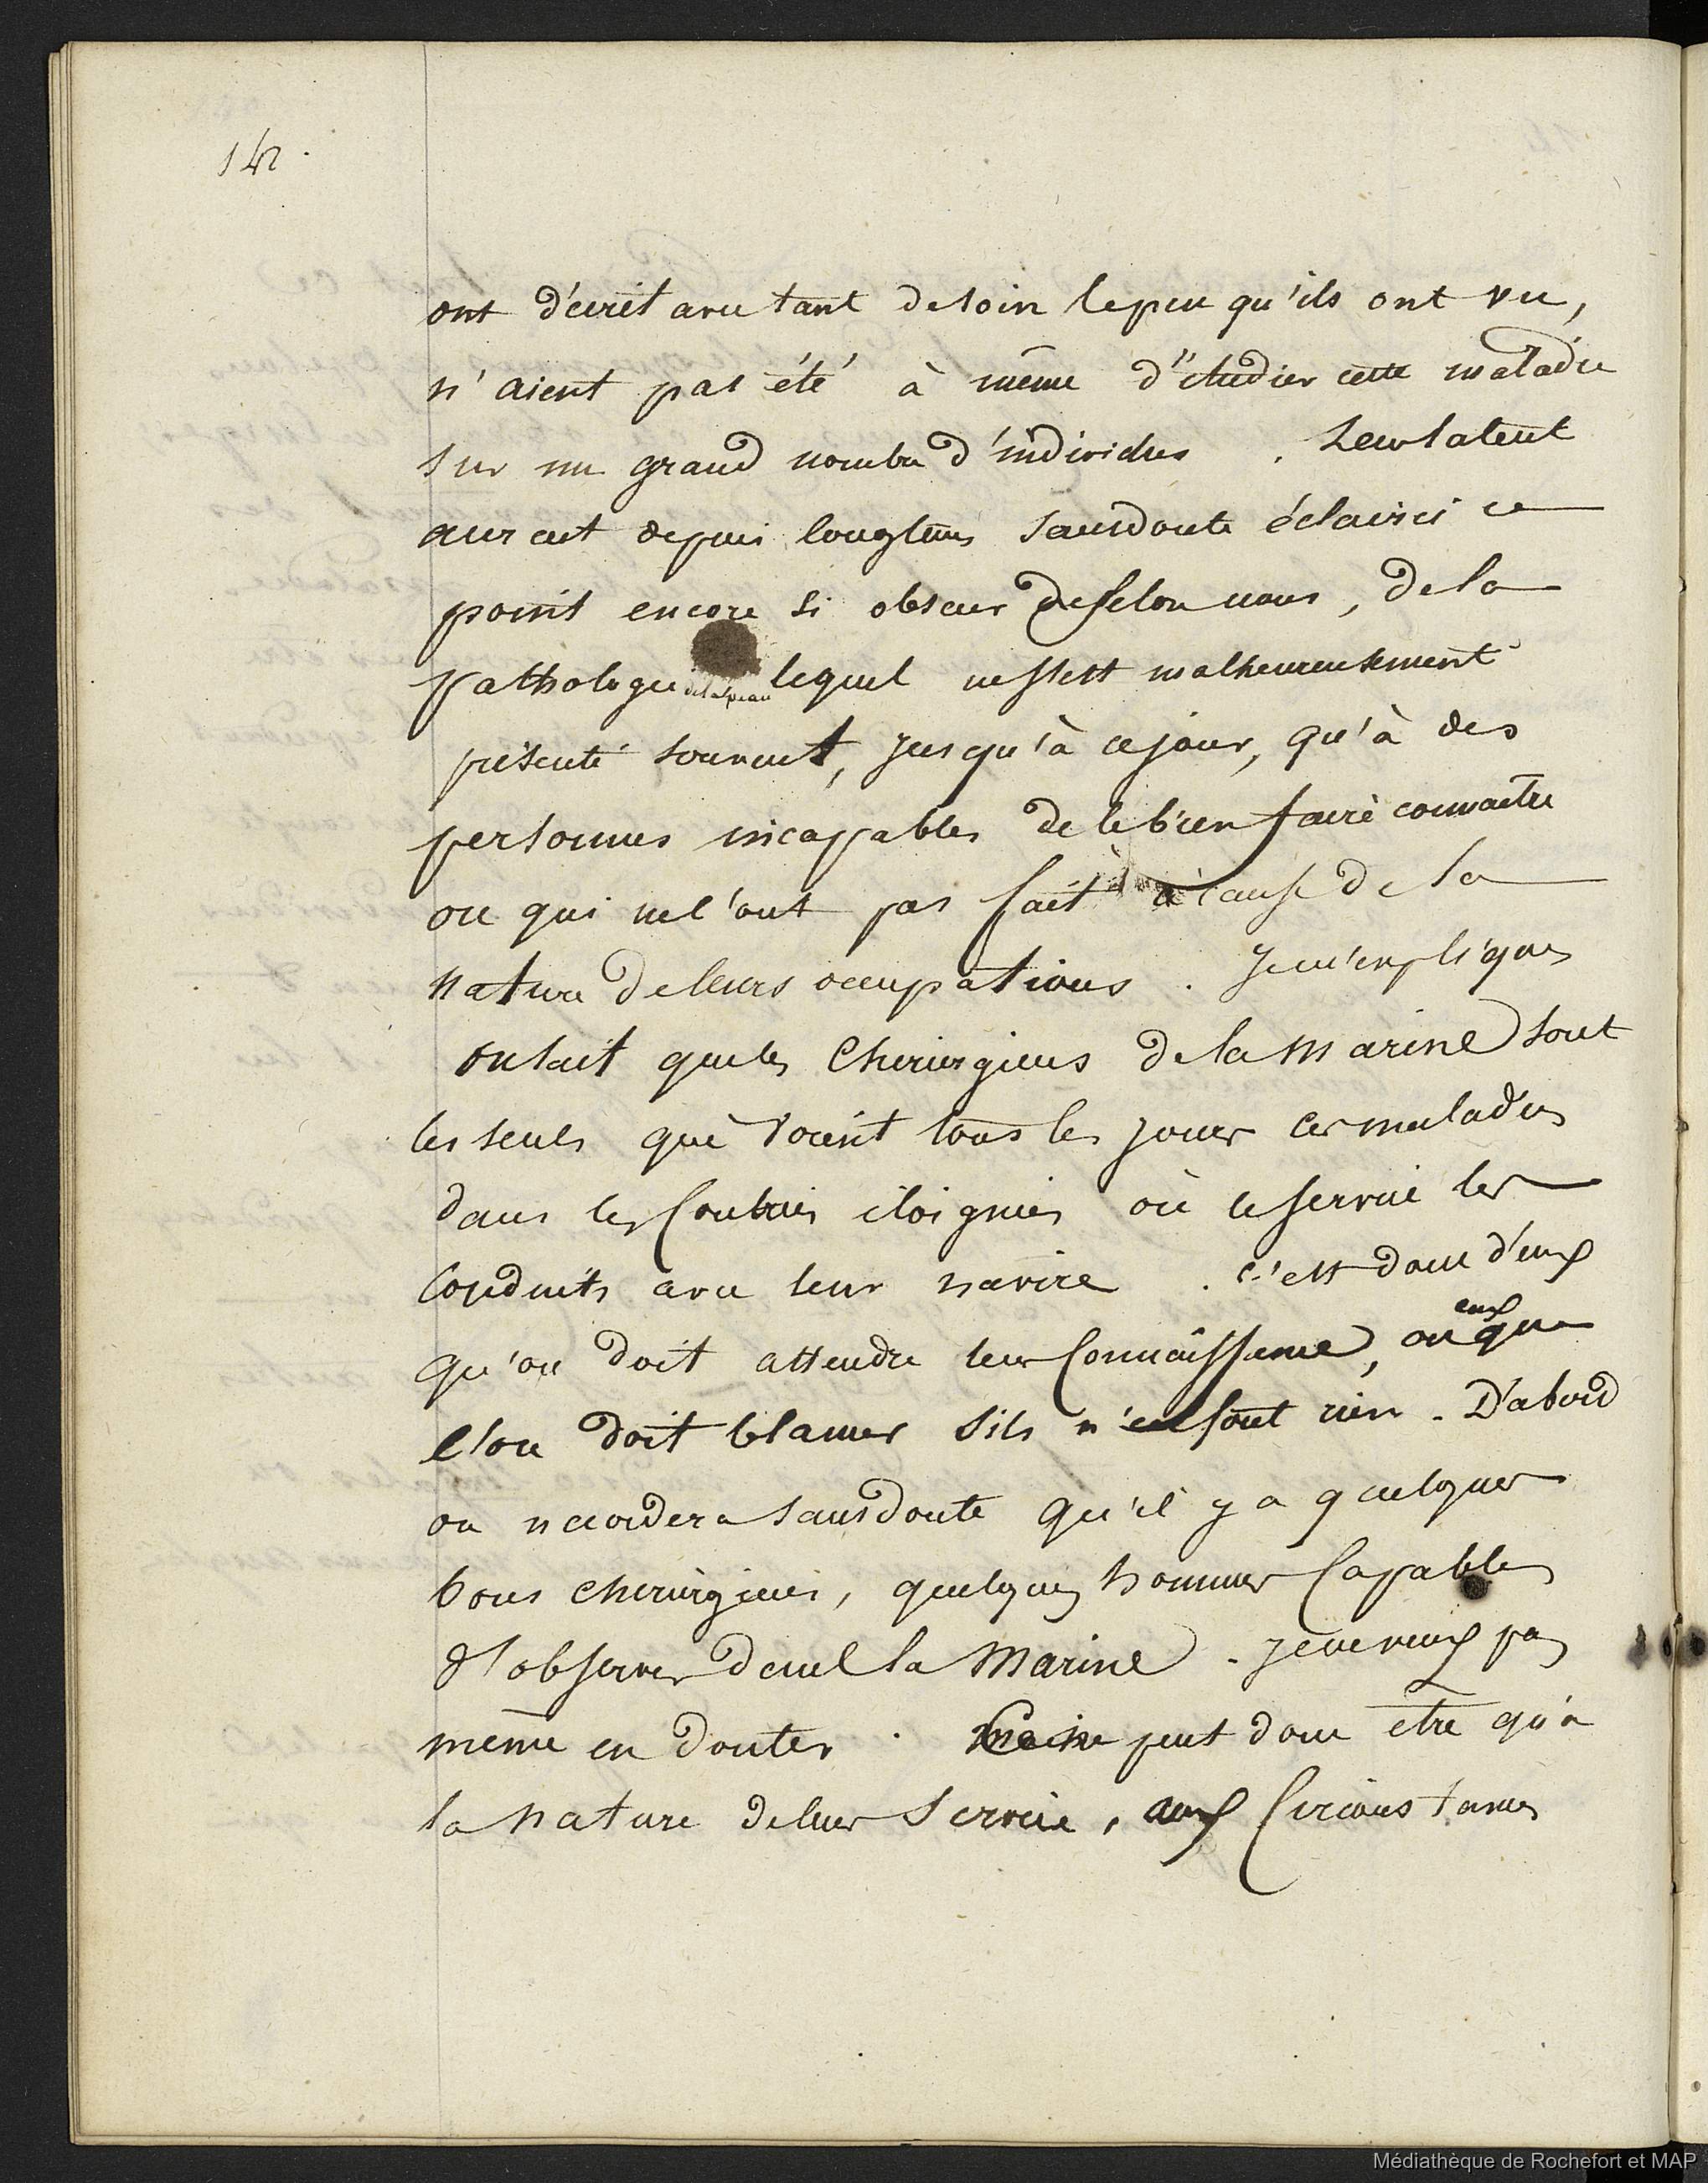 142.
ont d'écrit avec tant de soin le peu qu'ils ont vu,
n'aient pas été à même d'étudier cette maladie
sur un grand nombre d'individus. Leur talent
aurait depuis longtems sans doute éclairci ce
point encore si obscur selon nous, de la
pathologie de la peau lequel ne s'est malheureusement
présenté souvent, jusqu'à ce jour, qu'à des
personnes incapables de le bien faire connaitre
ou qui ne l'ont pas fait à cause de la
nature de leurs occupations. Je m'expliques
on sait que les chirurgiens de la marine sont
les seuls qui voient tous les jours ces maladies
dans les Contrées éloignées où le service les
Conduits avec leur navire. c'est donc d'eux
qu'on doit attendre leur Connaissance, ou eux que
l'on doit blamer sils n'en font rien. D'abord
on accordera sans doute qu'il y a quelques
bons chirurgiens, quelques hommes Capables
d'observer dans la Marine. Je ne veux pas
même en douter. Ce ne peut donc être qu'à
la nature de leur service, aux Circonstances
Médiathèque de Rochefort et MAP